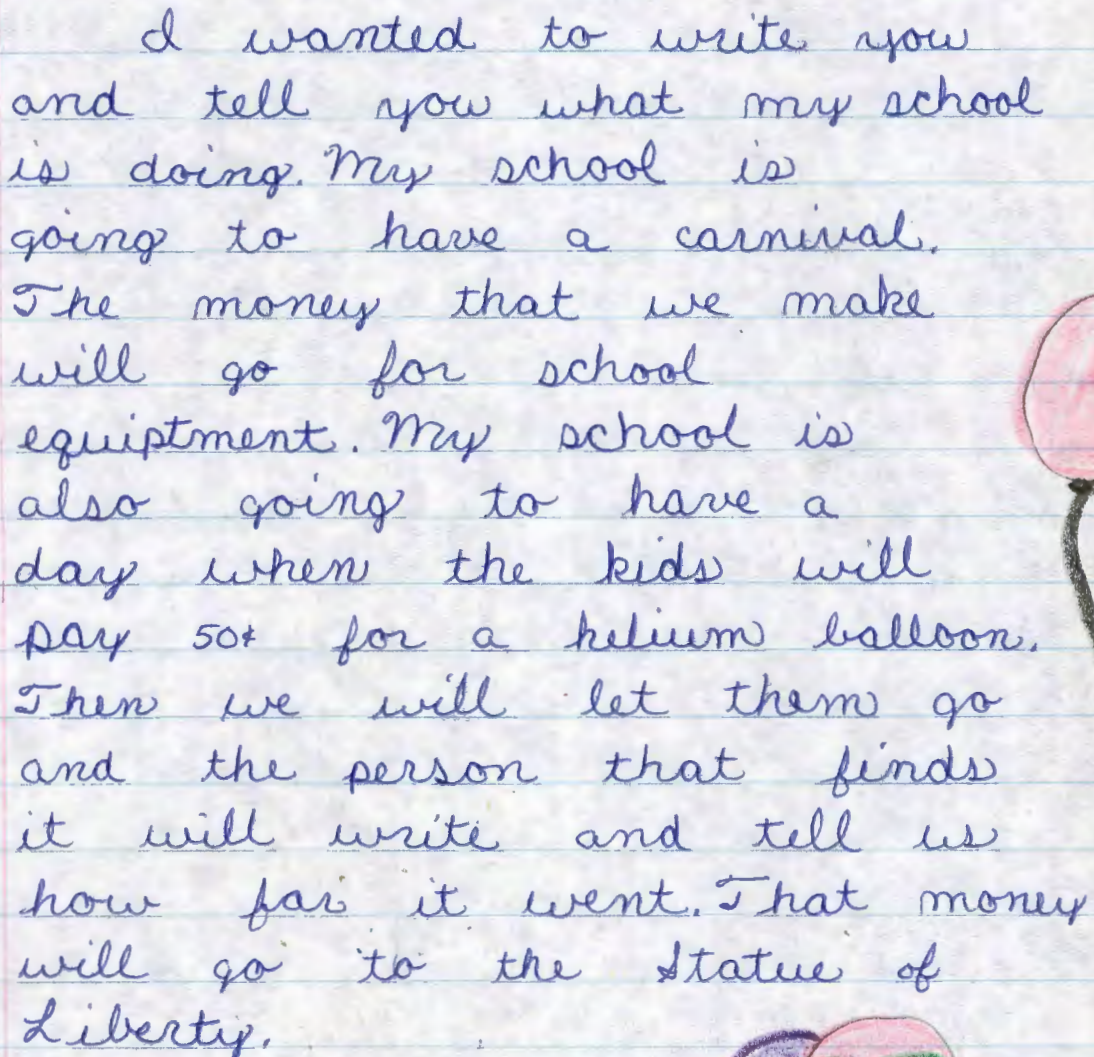 I wanted to write you
and tell you what my school
is doing. My school is
going to have a carnival.
The money that we make
will go for school
equiptment. My school is
also going to have a
day when the kids will
pay 50¢ for a helium balloon.
Then we will let them go
and the person that finds
it will write and tell us
how far it went. That money
will go to the Statue of
Liberty.